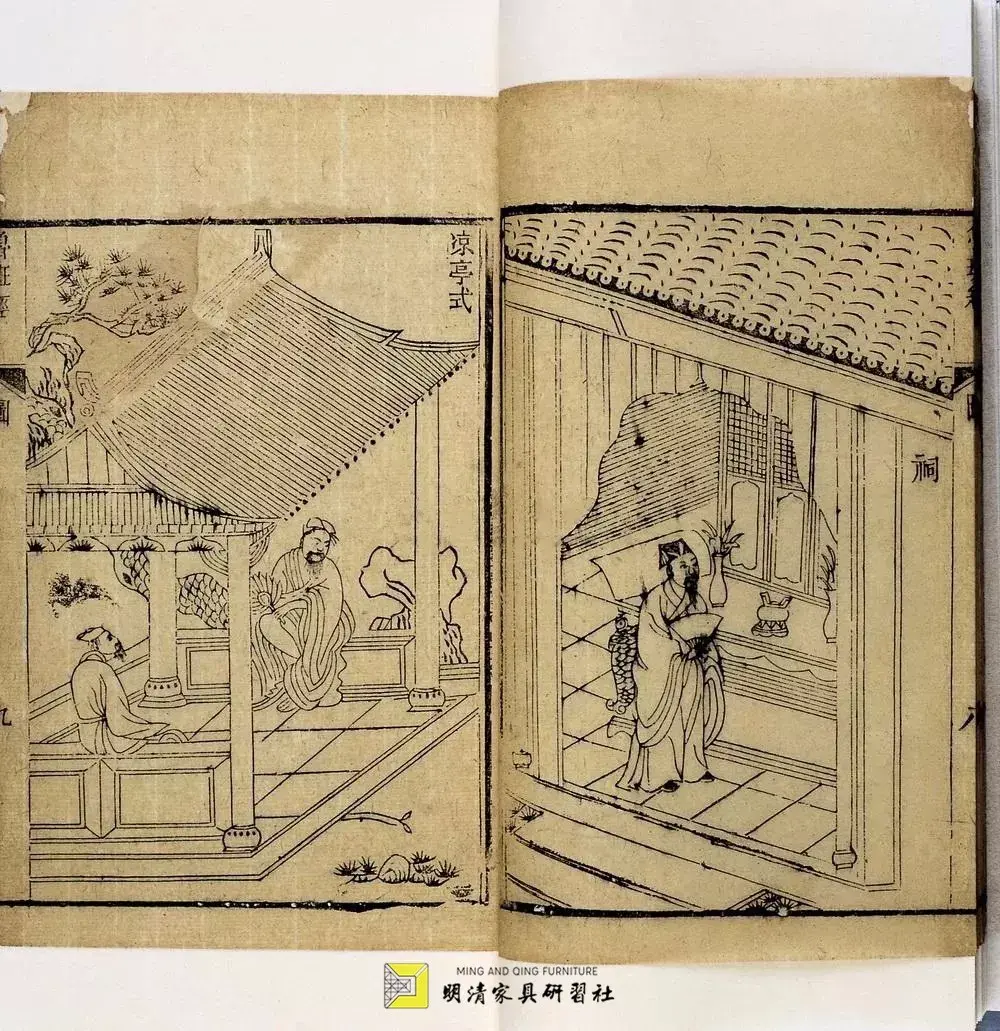 祠
八
涼亭式
魯班經
圖
九
MING AND QING FURNITURE
明清家具研習社